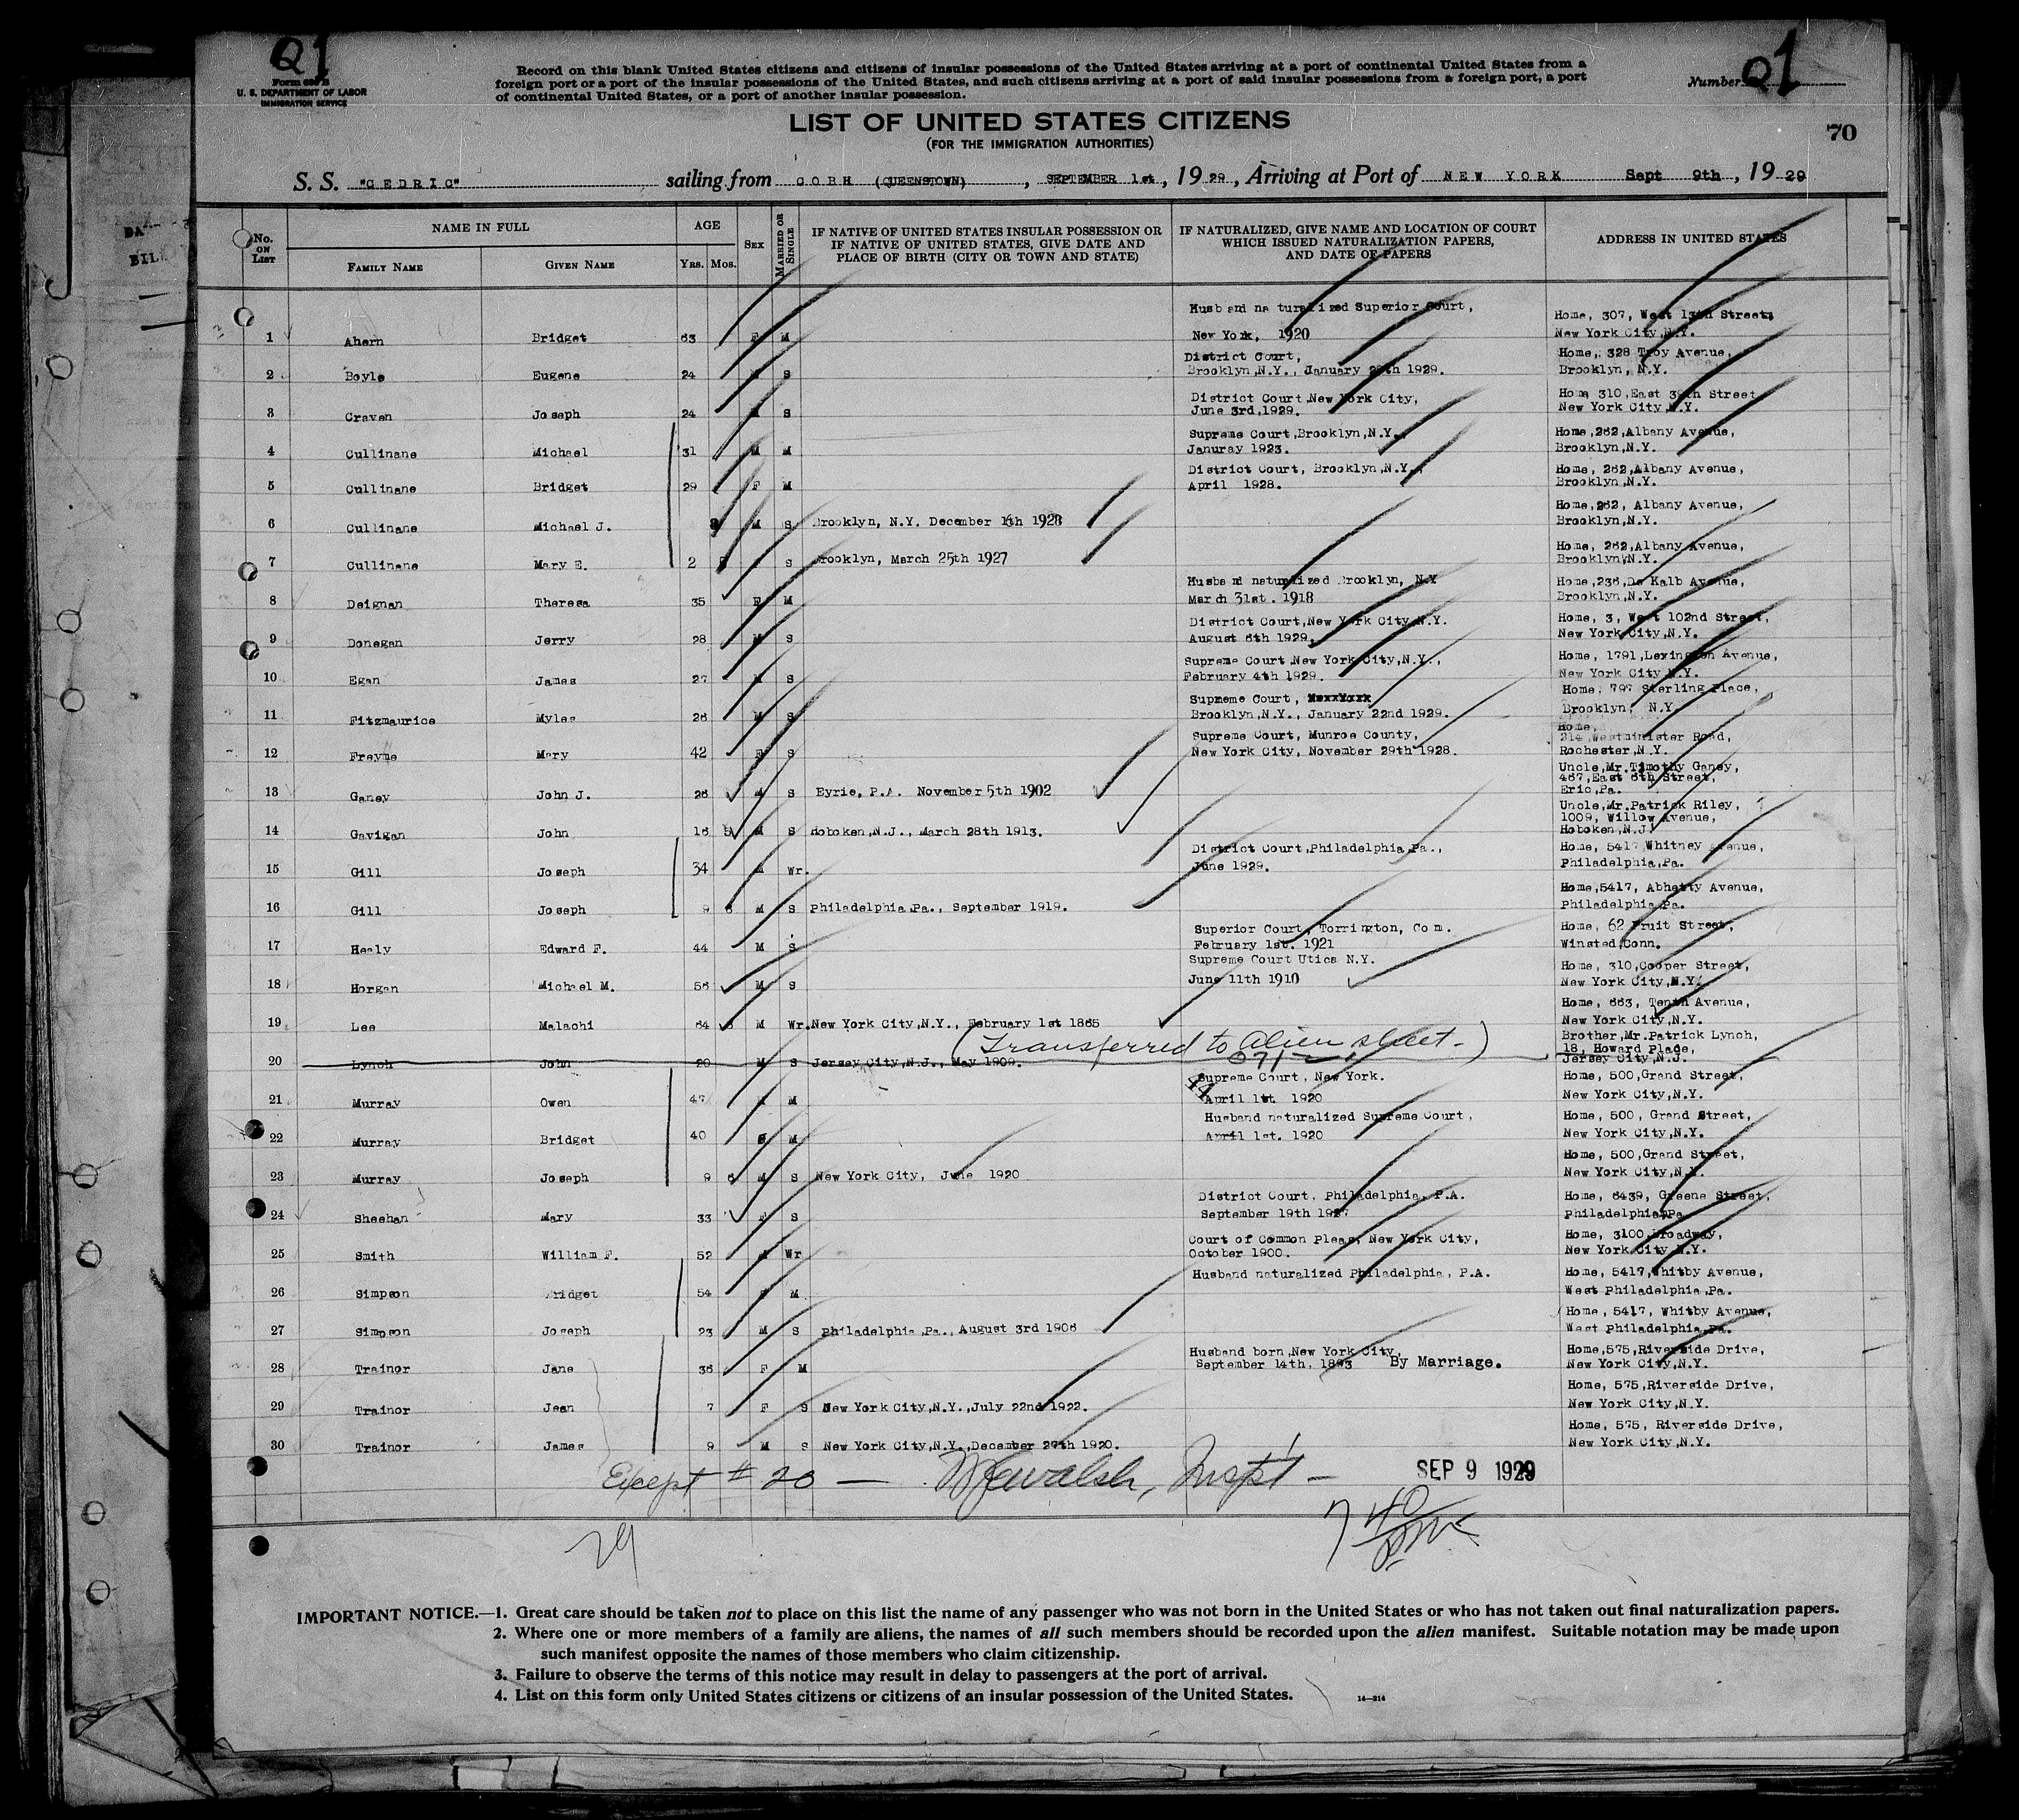 Q1
Form 630 B
U. S. DEPARTMENT OF LABOR
IMMIGRATION SERVICE
Record on this blank United States citizens and citizens of insular possessions of the United States arriving at a port of continental United States from a
foreign port or a port of the insular possessions of the United States, and such citizens arriving at a port of said insular possessions from a foreign port, a port
of continental United States, or a port of another insular possession.
Number Q1
LIST OF UNITED STATES CITIZENS
(FOR THE IMMIGRATION AUTHORITIES)
70
S. S. "CEDRIC" sailing from COBH (QUEENSTOWN), SEPTEMBER 1st, 19 29, Arriving at Port of NEW YORK Sept 9th, 19 29
No. ON LIST
NAME IN FULL
FAMILY NAME GIVEN NAME
AGE
YRS. MOS.
SEX
MARRIED OR SINGLE
IF NATIVE OF UNITED STATES INSULAR POSSESSION OR
IF NATIVE OF UNITED STATES, GIVE DATE AND
PLACE OF BIRTH (CITY OR TOWN AND STATE)
IF NATURALIZED, GIVE NAME AND LOCATION OF COURT
WHICH ISSUED NATURALIZATION PAPERS,
AND DATE OF PAPERS
ADDRESS IN UNITED STATES
Husband naturalized Superior Court, Home, 307, West 13th Street,
1 Ahern Bridget 63 F M New York, 1920 New York City, N.Y.
District Court, Home, 328 Troy Avenue,
2 Boyle Eugene 24 M S Brooklyn, N.Y., January 29th 1929. Brooklyn, N.Y.
District Court, New York City, Home 310, East 39th Street
3 Craven Joseph 24 M S June 3rd, 1929. New York City, N.Y.
Supreme Court, Brooklyn, N.Y., Home, 262, Albany Avenue,
4 Cullinane Michael 31 M M Januray 1923. Brooklyn, N.Y.
District Court, Brooklyn, N.Y., Home, 262, Albany Avenue,
5 Cullinane Bridget 29 F M April 1928. Brooklyn, N.Y.
Home, 262, Albany Avenue,
6 Cullinane Michael J. M S Brooklyn, N.Y. December 1928 Brooklyn, N.Y.
Home, 262, Albany Avenue,
7 Cullinane Mary E. 2 S Brooklyn, March 25th 1927 Brooklyn, N.Y.
Husband naturalized Brooklyn, N.Y Home, 236, De Kalb Avenue,
8 Deignan Theresa 35 F M March 31st. 1918 Brooklyn, N.Y.
District Court, New York City, N.Y. Home, 3, West 102nd Street,
9 Donegan Jerry 28 M S August 6th 1929. New York City, N.Y.
Supreme Court New York City, N.Y., Home, 1791, Lexington Avenue,
10 Egan James 27 M S February 4th 1929. New York City, N.Y.
Supreme Court, Home, 797 Sterling Place,
11 Fitzmaurice Myles 26 M S Brooklyn, N.Y., January 22nd 1929. Brooklyn, N.Y.
Supreme Court, Munroe County, Home, 214, Westminister Road,
12 Freyme Mary 42 F S New York City, November 29th 1928. Rochester, N.Y.
Uncle, Mr. Timothy Ganey,
467, East 6th Street,
13 Ganey John J. 26 M S Eyrie, P.A. November 5th 1902 Eric, Pa.
Uncle, Mr. Patrick Riley,
1009, Willow Avenue,
14 Gavigan John 16 5 M S Hoboken, N.J., March 28th 1913. Hoboken, N.J.
District Court, Philadelphia, Pa., Home, 5417 Whitney Avenue,
15 Gill Joseph 34 M Wr. June 1929. Philadelphia, Pa.
Home, 5417, Abhetty Avenue,
16 Gill Joseph 9 M S Philadelphia, Pa., September 1919. Philadelphia, Pa.
Superior Court, Torrington, Conn. Home, 62 Fruit Street,
17 Healy Edward F. 44 M S February 1st. 1921 Winsted, Conn.
Supreme Court Utica N.Y. Home, 310, Cooper Street,
18 Horgan Michael M. 56 M S June 11th 1910 New York City, N.Y.
Home, 663, Tenth Avenue,
19 Lee Malachi 64 M Wr. New York City, N.Y., February 1st 1865 New York City, N.Y.
(Transferred to Alien sheet-) Brother, Mr. Patrick Lynch,
18, Howard Place,
20 Lynch John 20 M S Jersey City, N.J., May 1909. Jersey City, N.J.
Supreme Court, New York. Home, 500, Grand Street,
21 Murray Owen 47 M M April 1st. 1920 New York City, N.Y.
Husband naturalized Supreme Court, Home, 500, Grand Street,
22 Murray Bridget 40 M April 1st. 1920 New York City, N.Y.
Home, 500, Grand Street,
23 Murray Joseph 9 M S New York City, June 1920 New York City, N.Y.
District Court, Philadelphia, P.A. Home, 6439, Greene Street,
24 Sheehan Mary 33 F S September 19th 1927 Philadelphia, Pa.
Court of Common Pleas, New York City, Home, 3100, Broadway,
25 Smith William F. 52 M Wr October 1900. New York City N.Y.
Husband naturalized Philadelphia, P.A. Home, 5417, Whitby Avenue,
26 Simpson Bridget 54 F M West Philadelphia, Pa.
Home, 5417, Whitby Avenue,
27 Simpson Joseph 23 M S Philadelphia, Pa., August 3rd 1906 West Philadelphia, Pa.
Husband born, New York City, Home, 575, Riverside Drive,
28 Trainor Jane 36 F M September 14th, 1893 By Marriage. New York City, N.Y.
Home, 575, Riverside Drive,
29 Trainor Jean 7 F S New York City, N.Y., July 22nd 1922. New York City, N.Y.
Home, 575, Riverside Drive,
30 Trainor James 9 M S New York City, N.Y., December 27th 1920. New York City, N.Y.
Except # 20 — Walsh, Inspt — SEP 9 1929
29
IMPORTANT NOTICE.—1. Great care should be taken not to place on this list the name of any passenger who was not born in the United States or who has not taken out final naturalization papers.
2. Where one or more members of a family are aliens, the names of all such members should be recorded upon the alien manifest. Suitable notation may be made upon
such manifest opposite the names of those members who claim citizenship.
3. Failure to observe the terms of this notice may result in delay to passengers at the port of arrival.
4. List on this form only United States citizens or citizens of an insular possession of the United States.
14—214